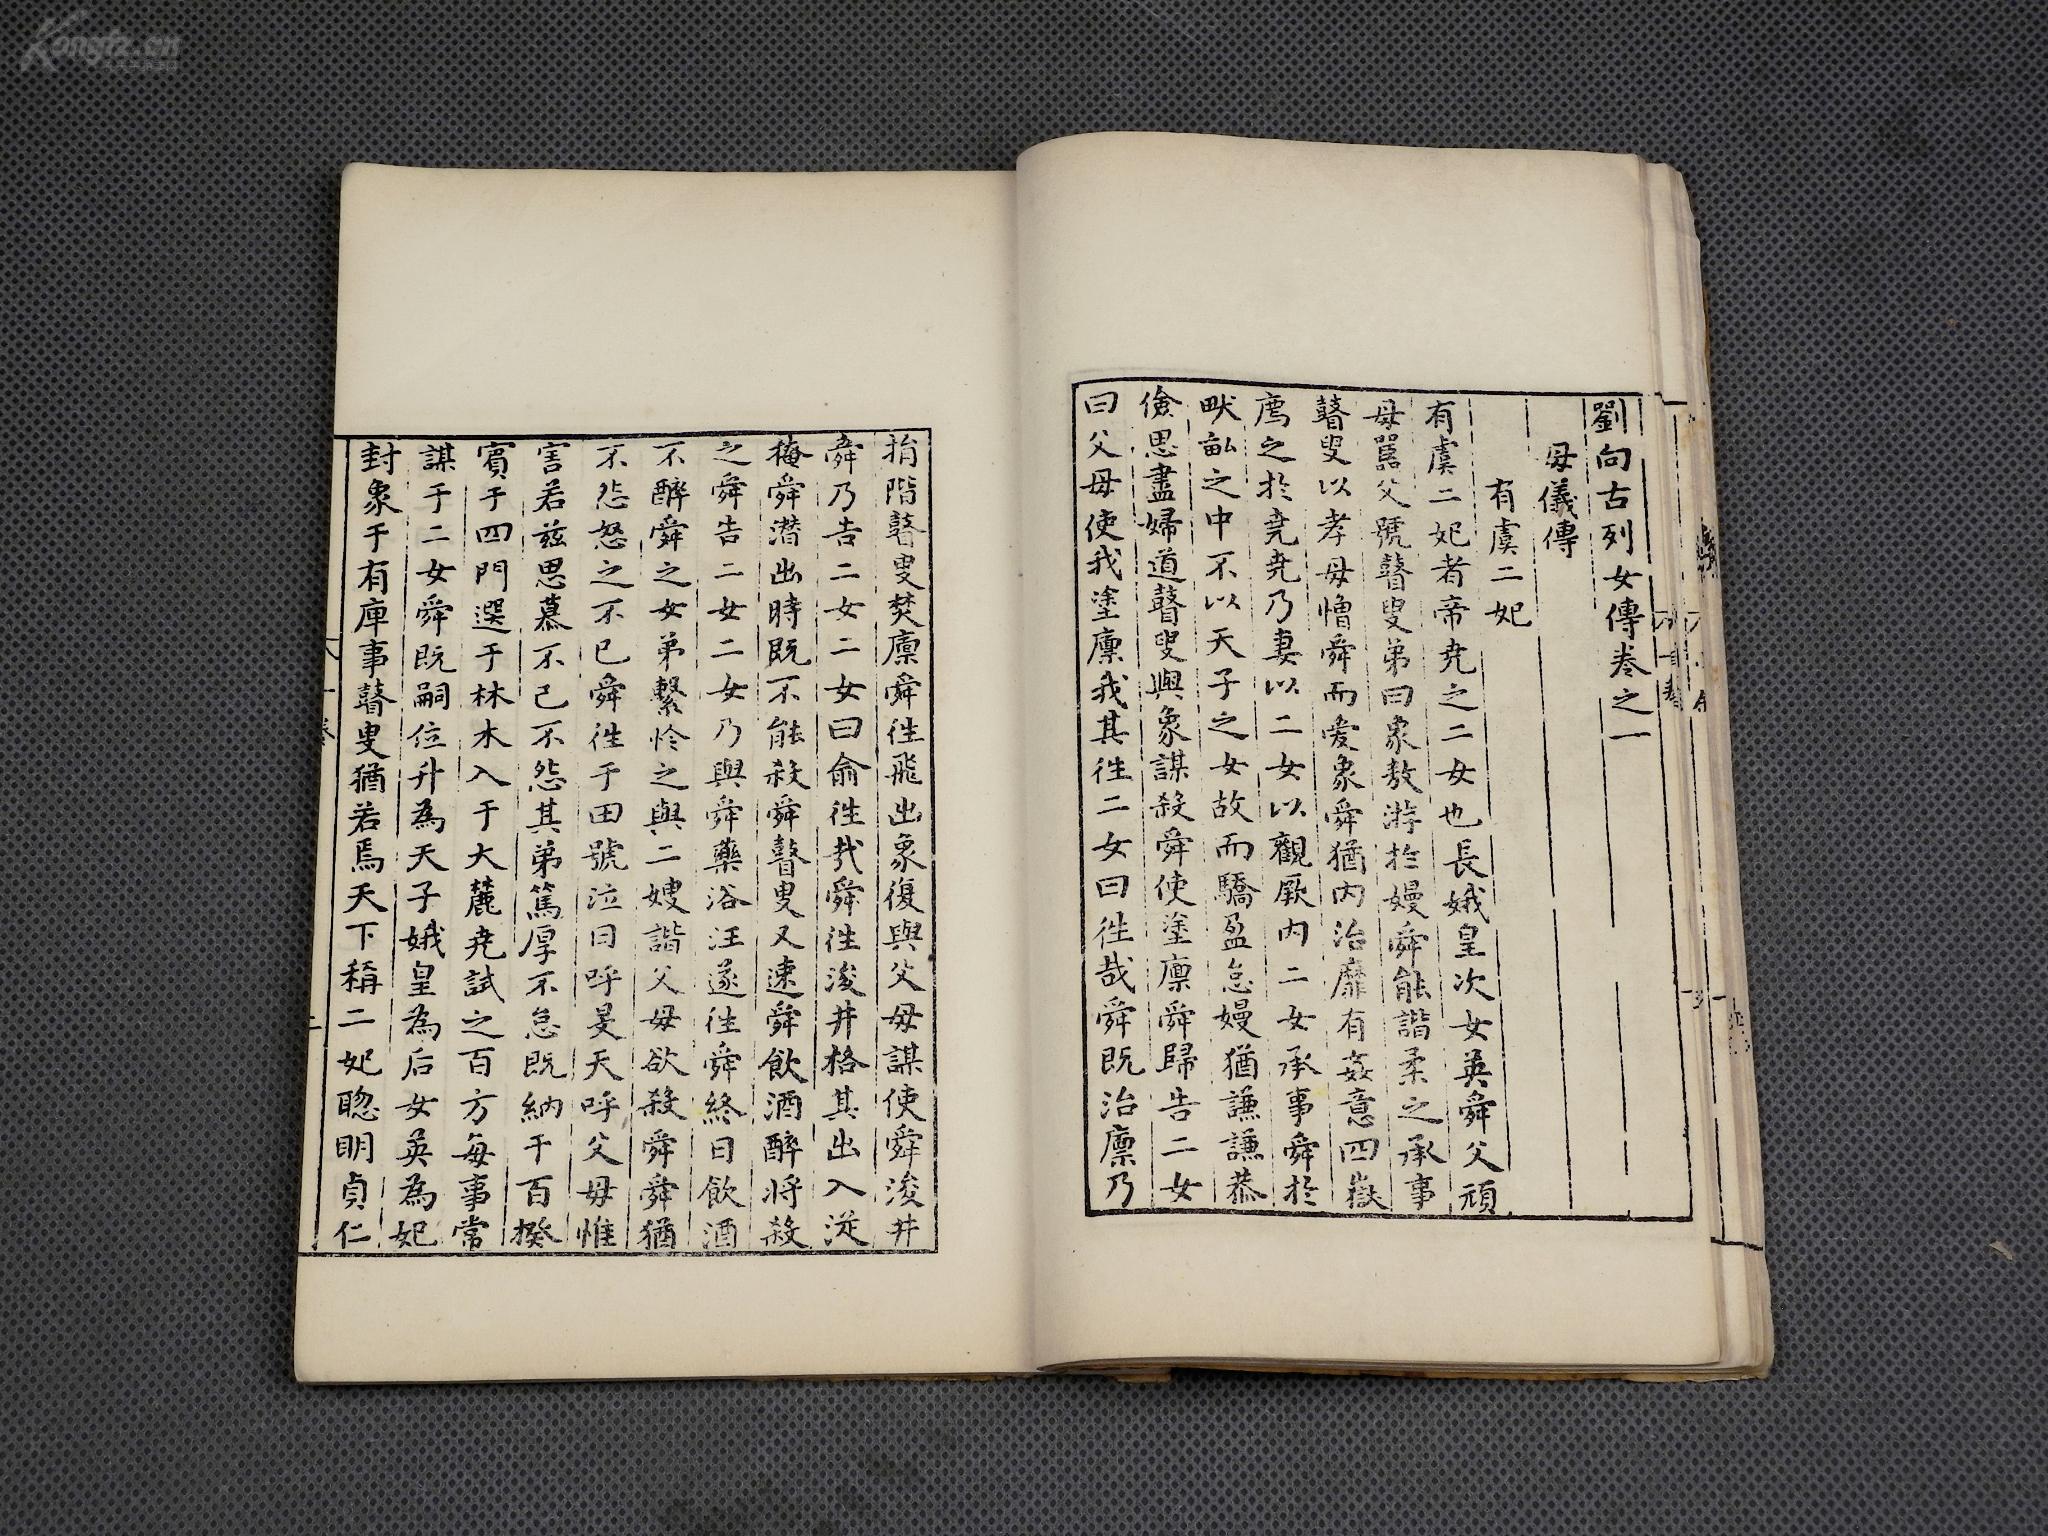 劉向古列女傳卷之一
母儀傳
有虞二妃
有虞二妃者帝尭之二女也長娥皇次女英舜父頑
母嚚父號瞽叟弟曰象敖游於嫚舜能諧柔之承事
瞽叟以孝母憎舜而愛象舜猶内治靡有姦意四嶽
薦之於尭尭乃妻以二女以觀厥内二女承事舜於
畎畝之中不以天子之女故而驕盈怠嫚猶謙謙恭
儉思盡婦道瞽叟與象謀殺舜使塗廪舜歸告二女
曰父母使我塗廪我其往二女曰往哉舜既治廪乃
捐階瞽叟焚廪舜往飛出象復與父母謀使舜浚井
舜乃告二女二女曰俞往哉舜往浚井格其出入従
掩舜潜出時既不能殺舜瞽叟又速舜飲酒醉将殺
之舜告二女二女乃與舜藥浴汪遂往舜終日飲酒
不醉舜之女弟繫怜之與二嫂諧父母欲殺舜舜猶
不怨怒之不已舜往于田號泣曰呼旻天呼父母惟
害若兹思慕不已不怨其弟篤厚不怠既納于百揆
賓于四門選于林木入于大麓尭試之百方每事常
謀于二女舜既嗣位升為天子娥皇為后女英為妃
封象于有庳事瞽叟猶若焉天下稱二妃聦明貞仁
Kongfz.cn